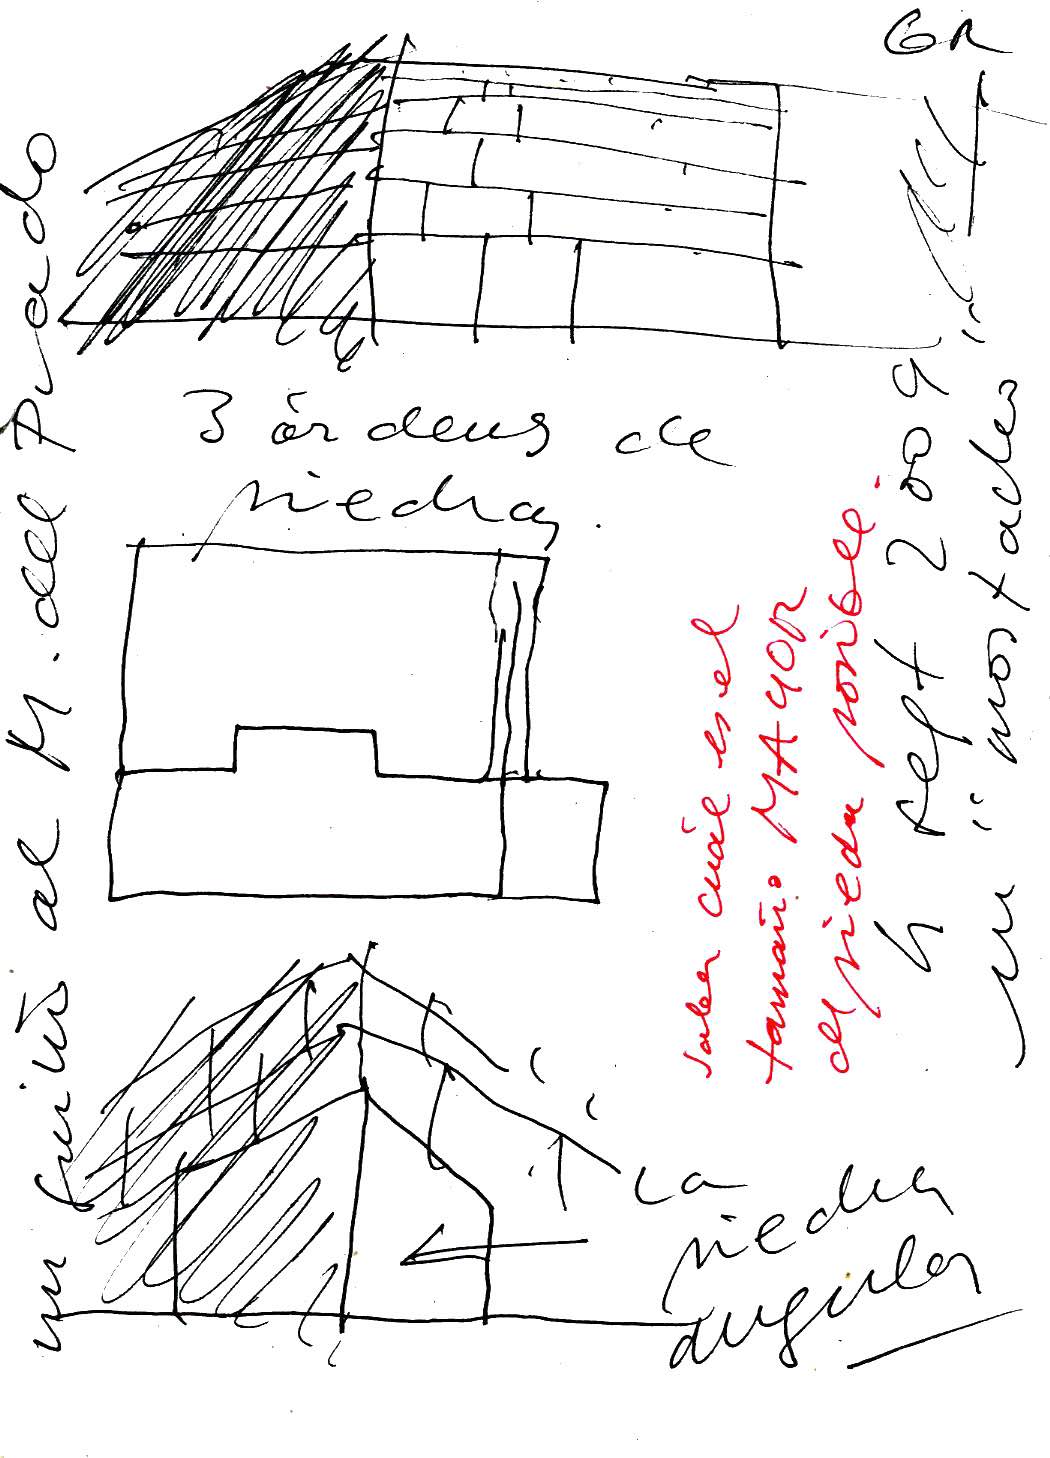 GR
3 órdenes de
piedra.
saber cuál es el
tamaño MAYOR
de piedra posible.
4 sept 2009
un
la
piedra
angular
un al M. del Prado